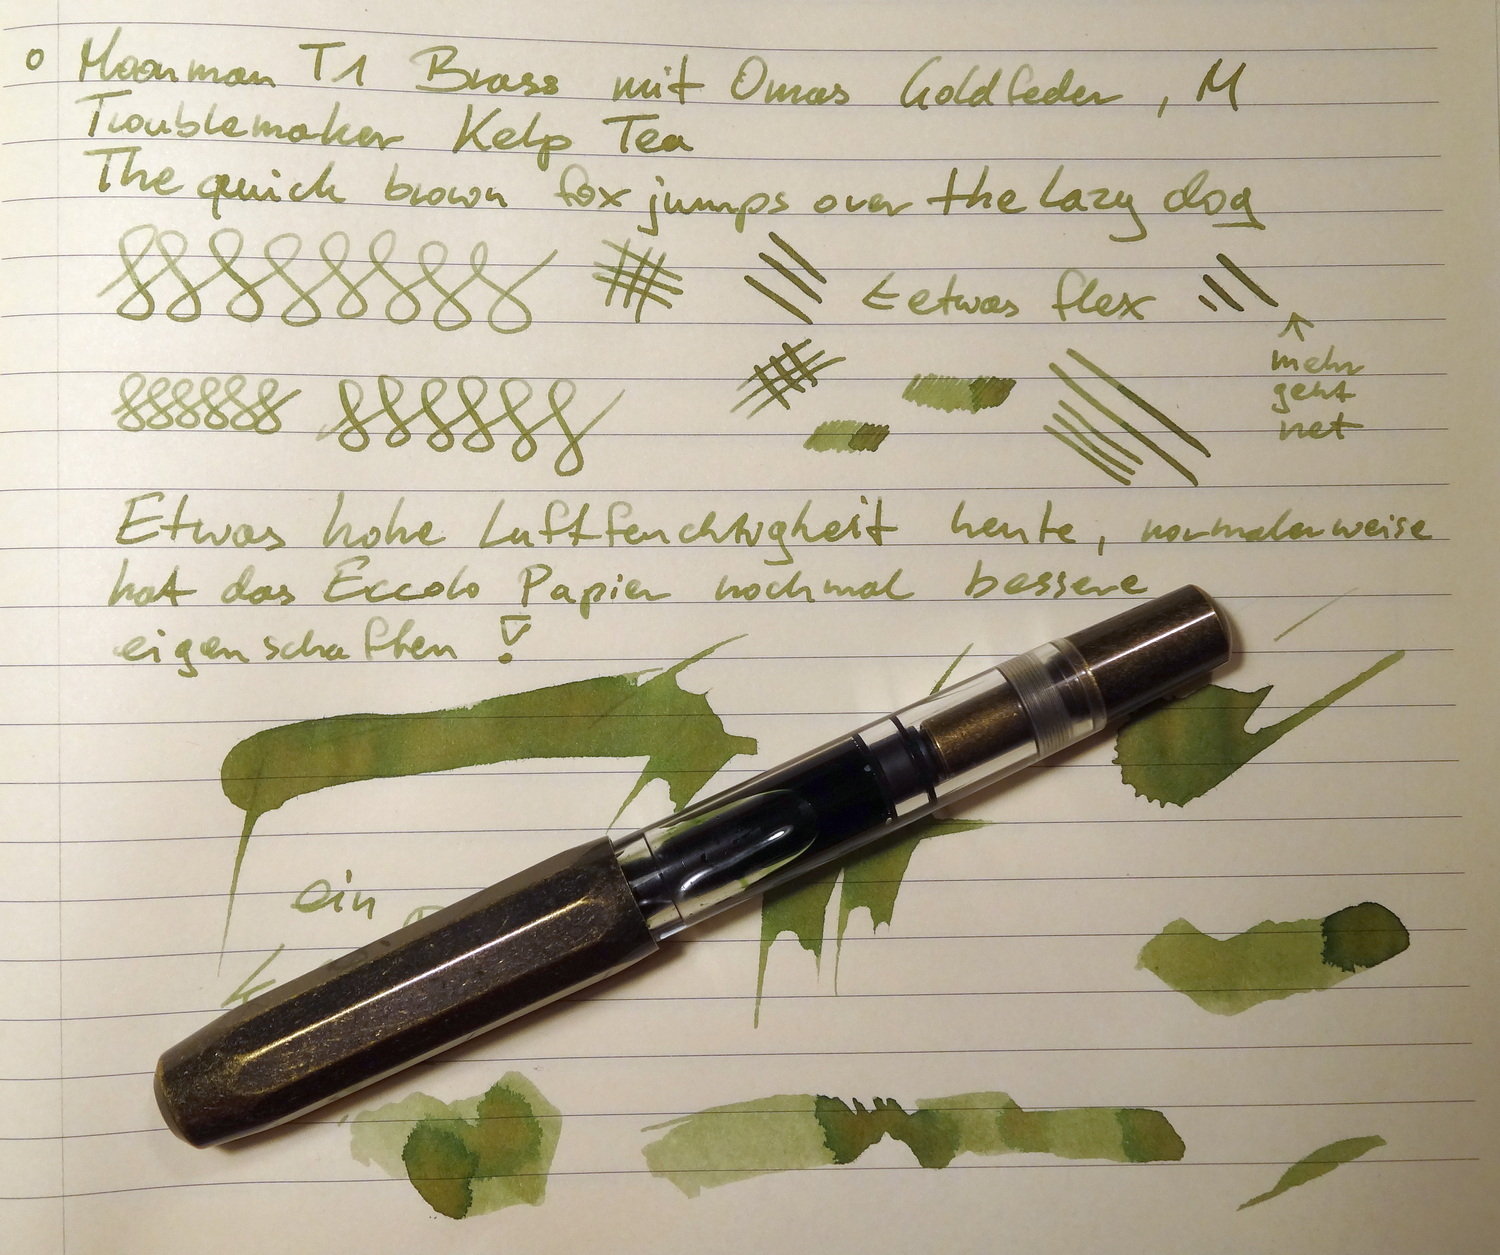 Moonman T1 Brass mit Omas Goldfeder, M
Troublemaker Kelp Tea
The quick brown fox jumps over the lazy dog
← etwas flex
↑
mehr
geht
net
Etwas hohe Luftfeuchtigkeit heute, normalerweise
hat das Eccolo Papier nochmal bessere
eigenschaften !
ein